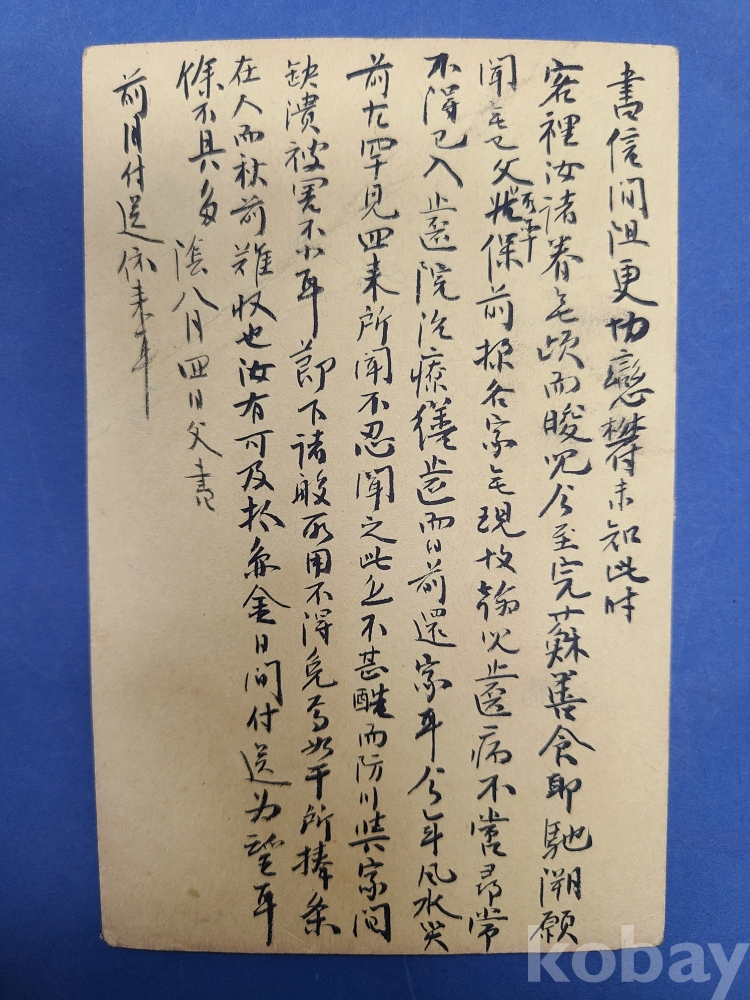 書信間阻更切戀欝未知此時
客裡汝諸眷無頉而畯兒今至完蘇善食耶馳溯願
聞無已父狀姑保前樣各家無現故翰兒 病不啻尋常
不得已入 院治療 而日前還家耳今年風水災
前古罕見四來所聞不忍聞之此上不甚酷而防川與家間
缺潰被害不少耳 節下諸般所用不得免為如干所捧条
在人而秋前難收也汝有可及於金日間付送为望耳
餘不具多 陰八月四日父書
前月付送依来耳
kobay